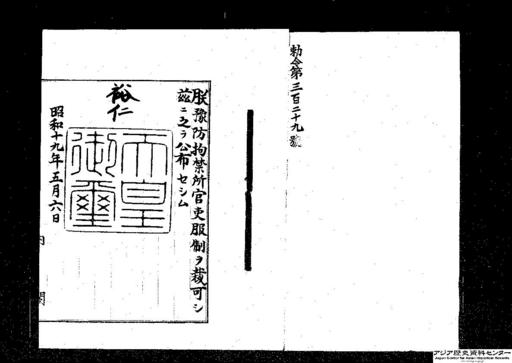 勅令第三百二十九號
朕豫防拘禁所官吏服制ヲ裁可シ
茲ニ之ヲ公布セシム
裕仁
天皇御璽
昭和十九年五月六日
内閣
アジア歴史資料センター
Japan Center for Asian Historical Records